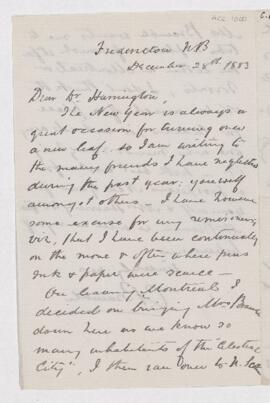 ACC 1000
Fredericton N.B
December 28th 1883
Dear Dr Harrington,
The New Year is always a
great occasion for turning over
a new leaf so I am writing to
the many friends I have neglected
during the past year, yourself
amongst others - I have however
some excuse for my remissness
viz, that I have been continually
on the move & often where pens
ink & paper were scarce -
On leaving Montreal I
decided on bringing Mrs
down here as we know so
many inhabitants of the "Celestial
City", I then ran over to N.